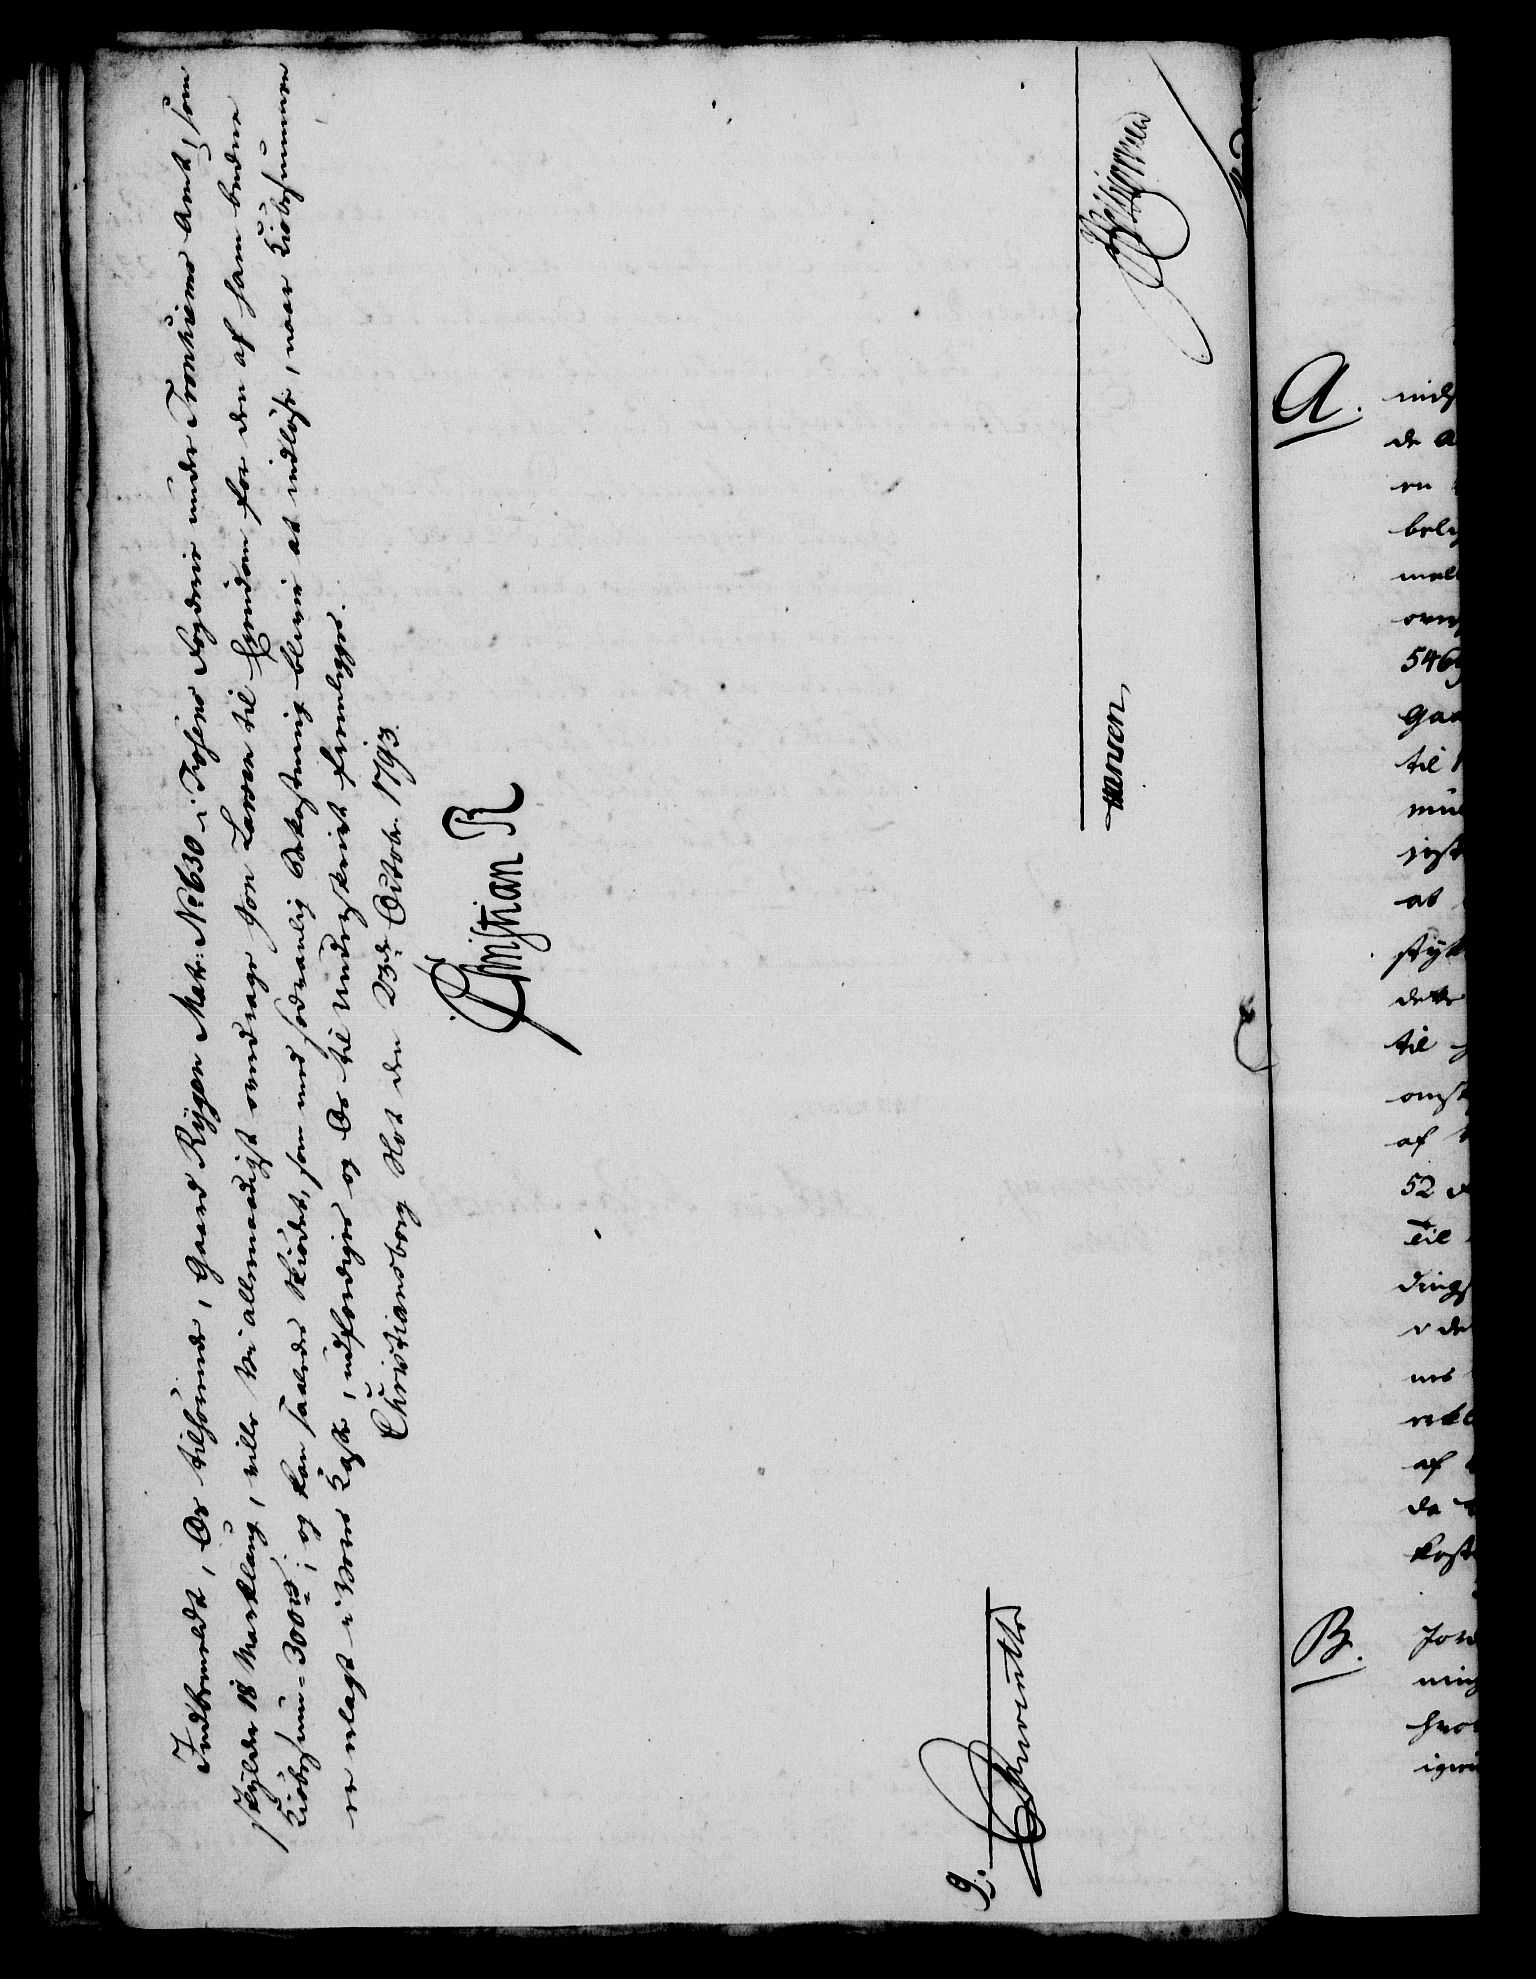 Indbemeldt, Os tilhörende, Gaard Rÿgen Matr: No 630 i Fosens Fogderie under Tronhiems Amt, som
skylder 18 Marklaug, ville Vi allernaadigst overdrage Jon Larsen til Eyendom for den af ham budne
Kiöbesum = 300 rd; og kan saaledes Skiödet, som med sædvanlig Bekostning bliver at indlöse, naar Kiöbesummen
er erlagt i Vores Kasse, udfærdiges og Os til Underskrivt forelægges.
Christiansborg Slot den 23de Octobr. 1793.
Christian R
Hansen
9.
A.
mids
de A
en
belig
mel
over
546
Gaa
til
mue
sidst
at
styk
dette
til
omst
af
52
Til
dings
ved
af
da
kost
B.
Jord
ning
hvor
igien